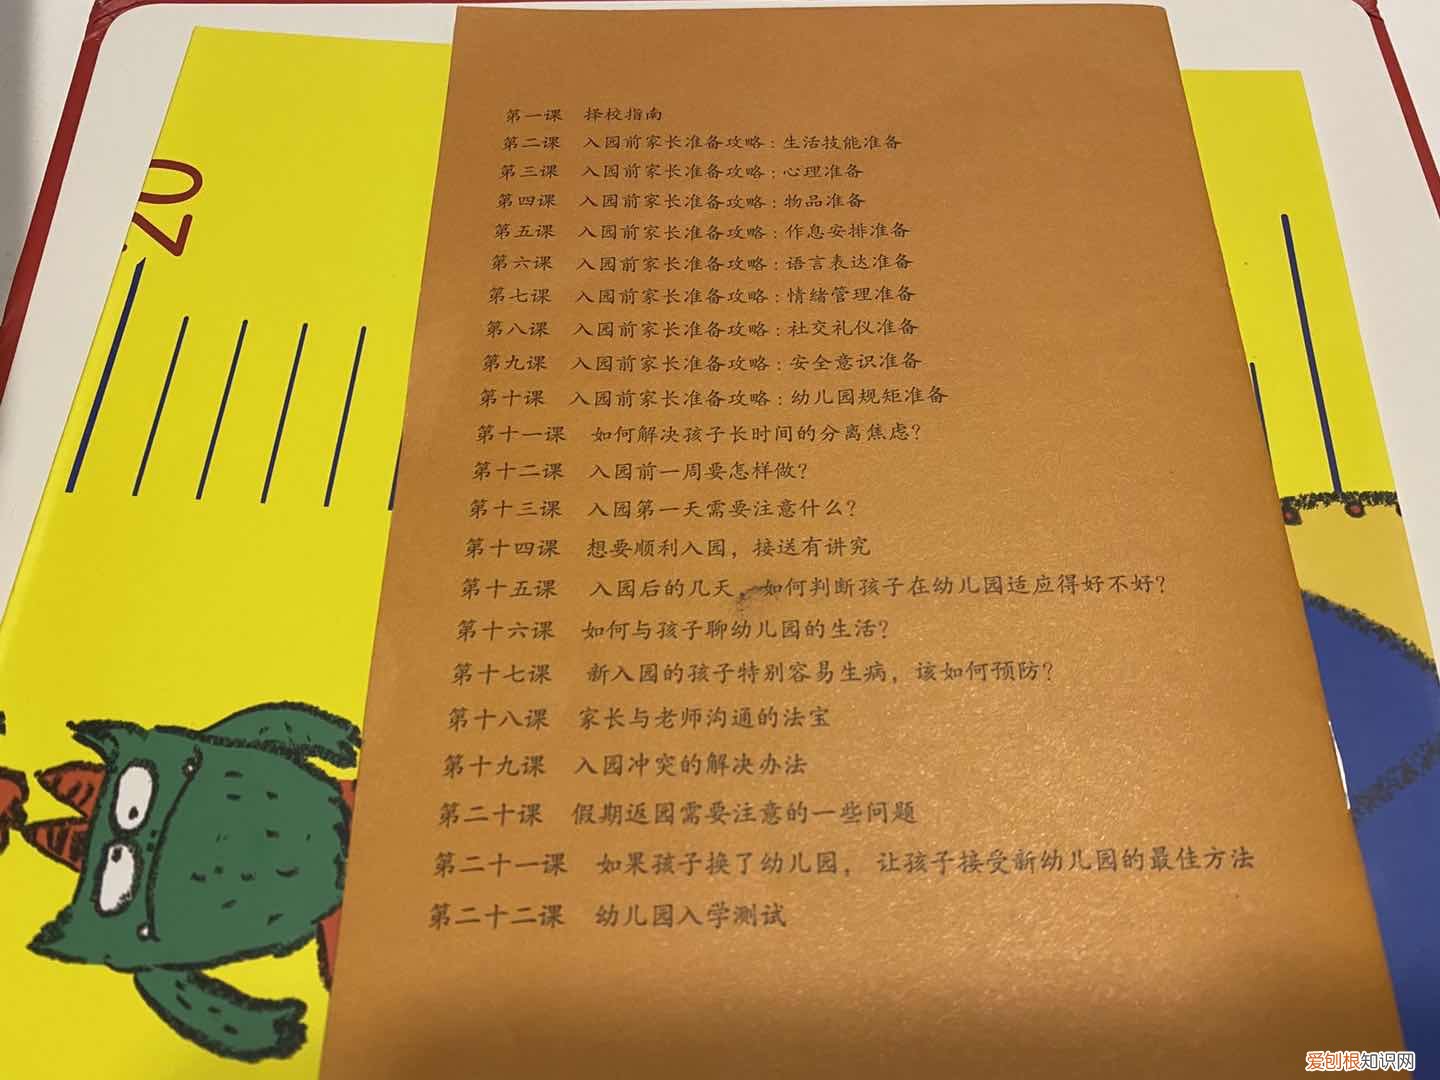 20
第一课 择校指南
第二课 入园前家长准备攻略：生活技能准备
第三课 入园前家长准备攻略：心理准备
第四课 入园前家长准备攻略：物品准备
第五课 入园前家长准备攻略：作息安排准备
第六课 入园前家长准备攻略：语言表达准备
第七课 入园前家长准备攻略：情绪管理准备
第八课 入园前家长准备攻略：社交礼仪准备
第九课 入园前家长准备攻略：安全意识准备
第十课 入园前家长准备攻略：幼儿园规矩准备
第十一课 如何解决孩子长时间的分离焦虑？
第十二课 入园前一周要怎样做？
第十三课 入园第一天需要注意什么？
第十四课 想要顺利入园，接送有讲究
第十五课 入园后的几天，如何判断孩子在幼儿园适应得好不好？
第十六课 如何与孩子聊幼儿园的生活？
第十七课 新入园的孩子特别容易生病，该如何预防？
第十八课 家长与老师沟通的法宝
第十九课 入园冲突的解决办法
第二十课 假期返园需要注意的一些问题
第二十一课 如果孩子换了幼儿园，让孩子接受新幼儿园的最佳方法
第二十二课 幼儿园入学测试
爱刨根知识网